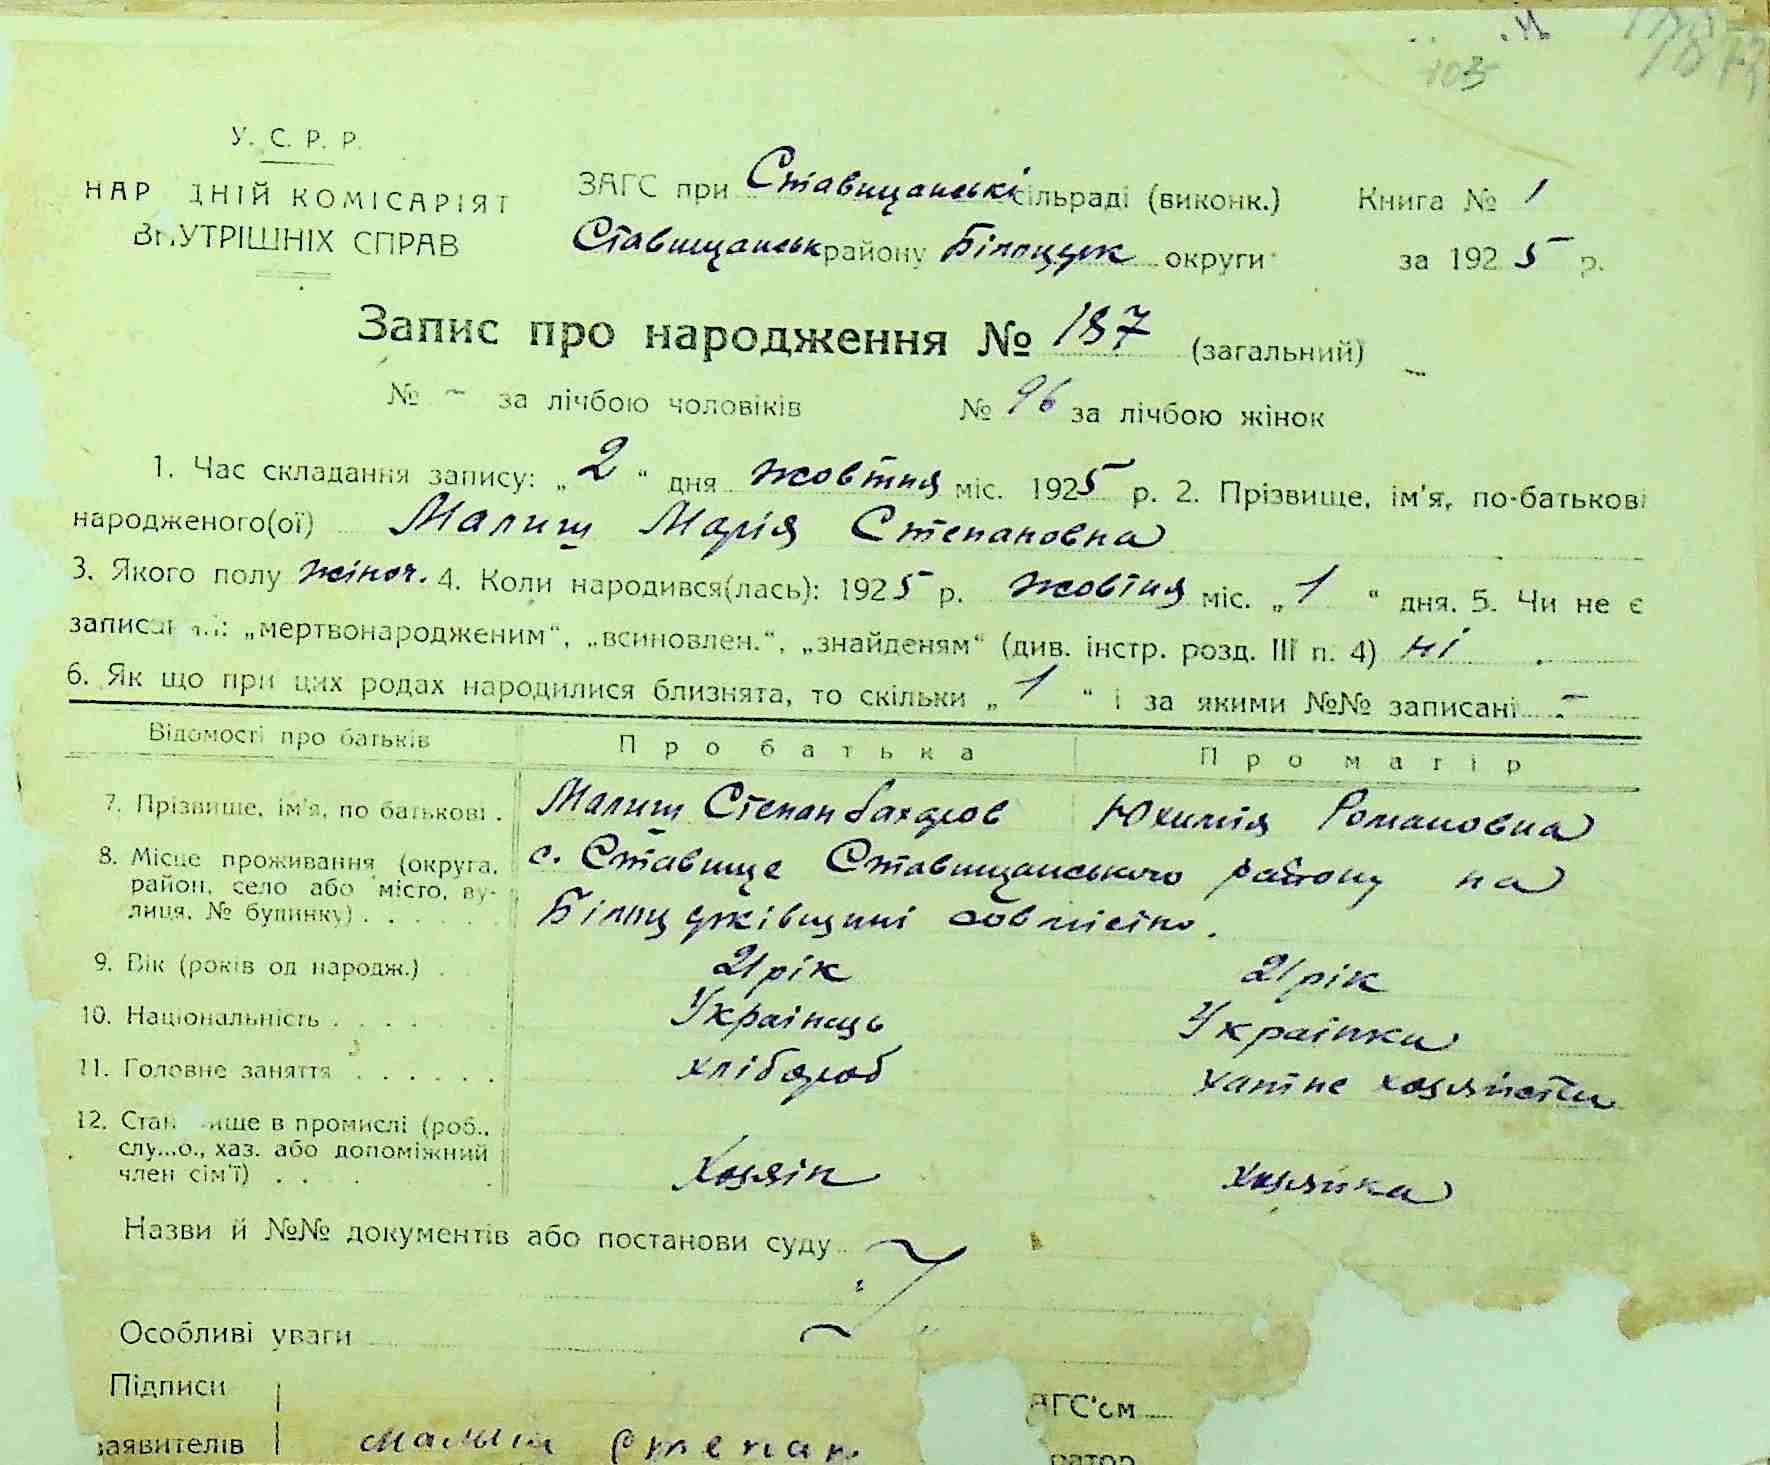 103
У. С. Р. Р.
НАР ДНІЙ КОМІСАРІЯТ
ВНУТРІШНІХ СПРАВ
ЗАГС при Ставищанські сільраді (виконк.) Книга № 1
Ставищанськ району Білоцерк округи за 1925 р.
Запис про народження № 187 (загальний)
№ – за лічбою чоловіків № 96 за лічбою жінок
1. Час складання запису: „2“ дня жовтня міс. 1925 р. 2. Прізвище, ім'я, по-батькові
народженого(ої) Малиш Марія Степановна
3. Якого полу жіноч. 4. Коли народився(лась): 1925 р. жовтня міс. „1“ дня. 5. Чи не є
„мертвонародженим“, „всиновлен.“, „знайденям“ (див. інстр. розд. III п. 4) ні
6. Як що при цих родах народилися близнята, то скільки „1“ і за якими №№ записані –
Відомості про батьків Про батька Про матір
7. Прізвище, ім'я, по батькові . Малиш Степан Юхимія Романовна
8. Місце проживання (округа, район, село або місто, вулиця, № будинку) . . . . . . с. Ставище Ставищанського району на
Білоцерківщині совмістно.
9. Вік (років од народж.) . 21 рік 21 рік
10. Національність . . . . . Українець Українка
11. Головне заняття . . . . . . хлібороб хатнє
12. Стан ище в промислі (роб., слу...о., хаз. або допоміжний член сім'ї) . . . . Хозяін хозяйка
Назви й №№ документів або постанови суду
Особливі уваги
Підписи АГС'ом
заявителів Малиш Степан
ратор